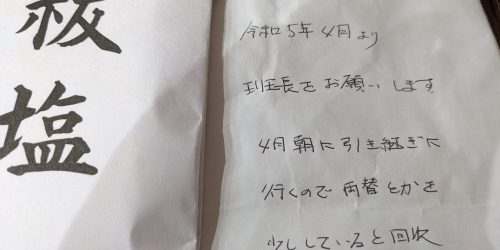 祓
塩
令和5年4月より
班長をお願いします
4月朝に引き継ぎに
行くので両替とかを
少ししていると回収